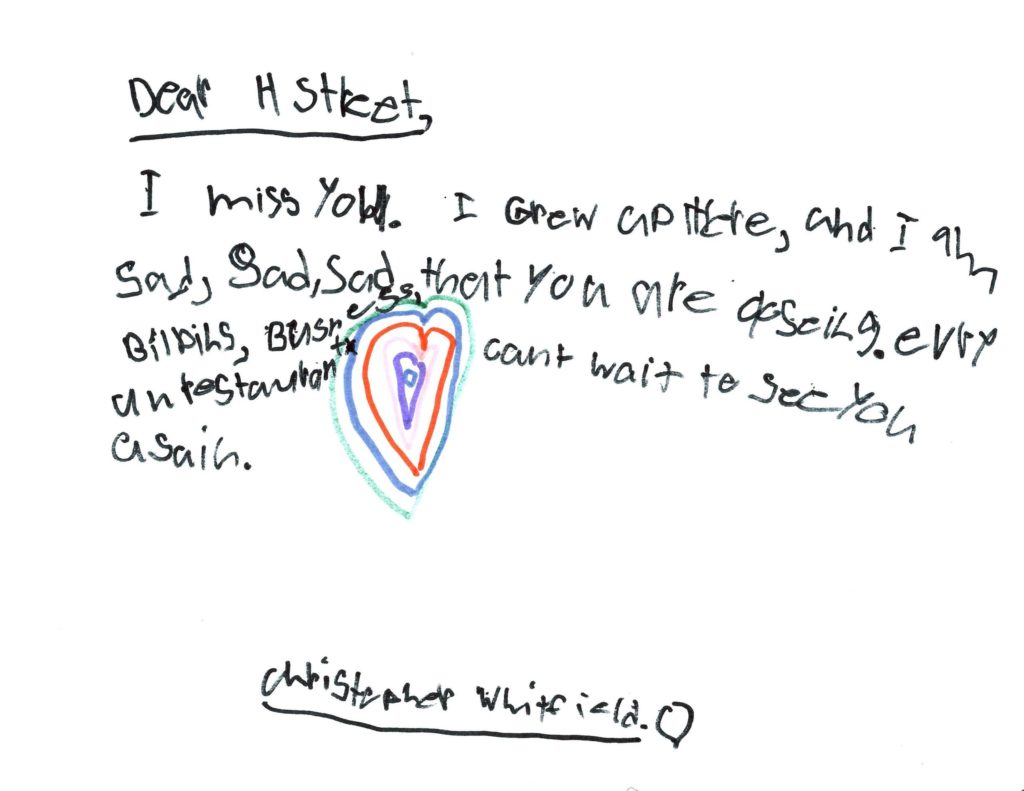 Dear H Street,
I miss You. I Grew up there, and I am
sad, Sad, Sad, that you are closeing. evry
Bilding, Busness,
un restaurant cant wait to see You
again.
Christopher Whitfield.